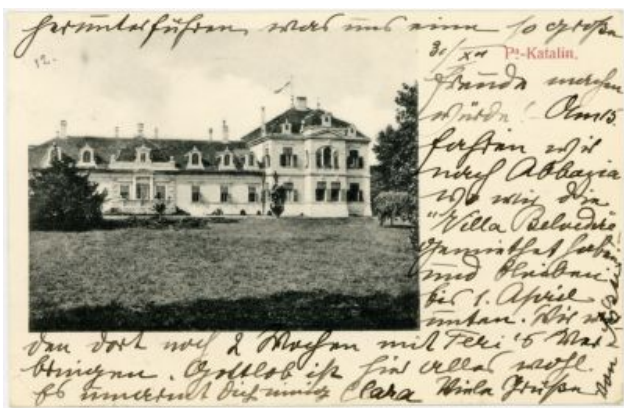 herunterführen, was uns eine so große
12.
30/XII
Pt-Katalin.
Freude machen
würde! Am 15
fahren wir
nach Abbazia
wo wir die
"Villa Belvedere
gemiethet haben
und bleiben
bis 1. April
unten. Wir
den dort noch 2 Wochen mit Feri's
bringen. Gottlob ist hier alles wohl.
Es umarmt Dich innig Clara Viele Grüße
von